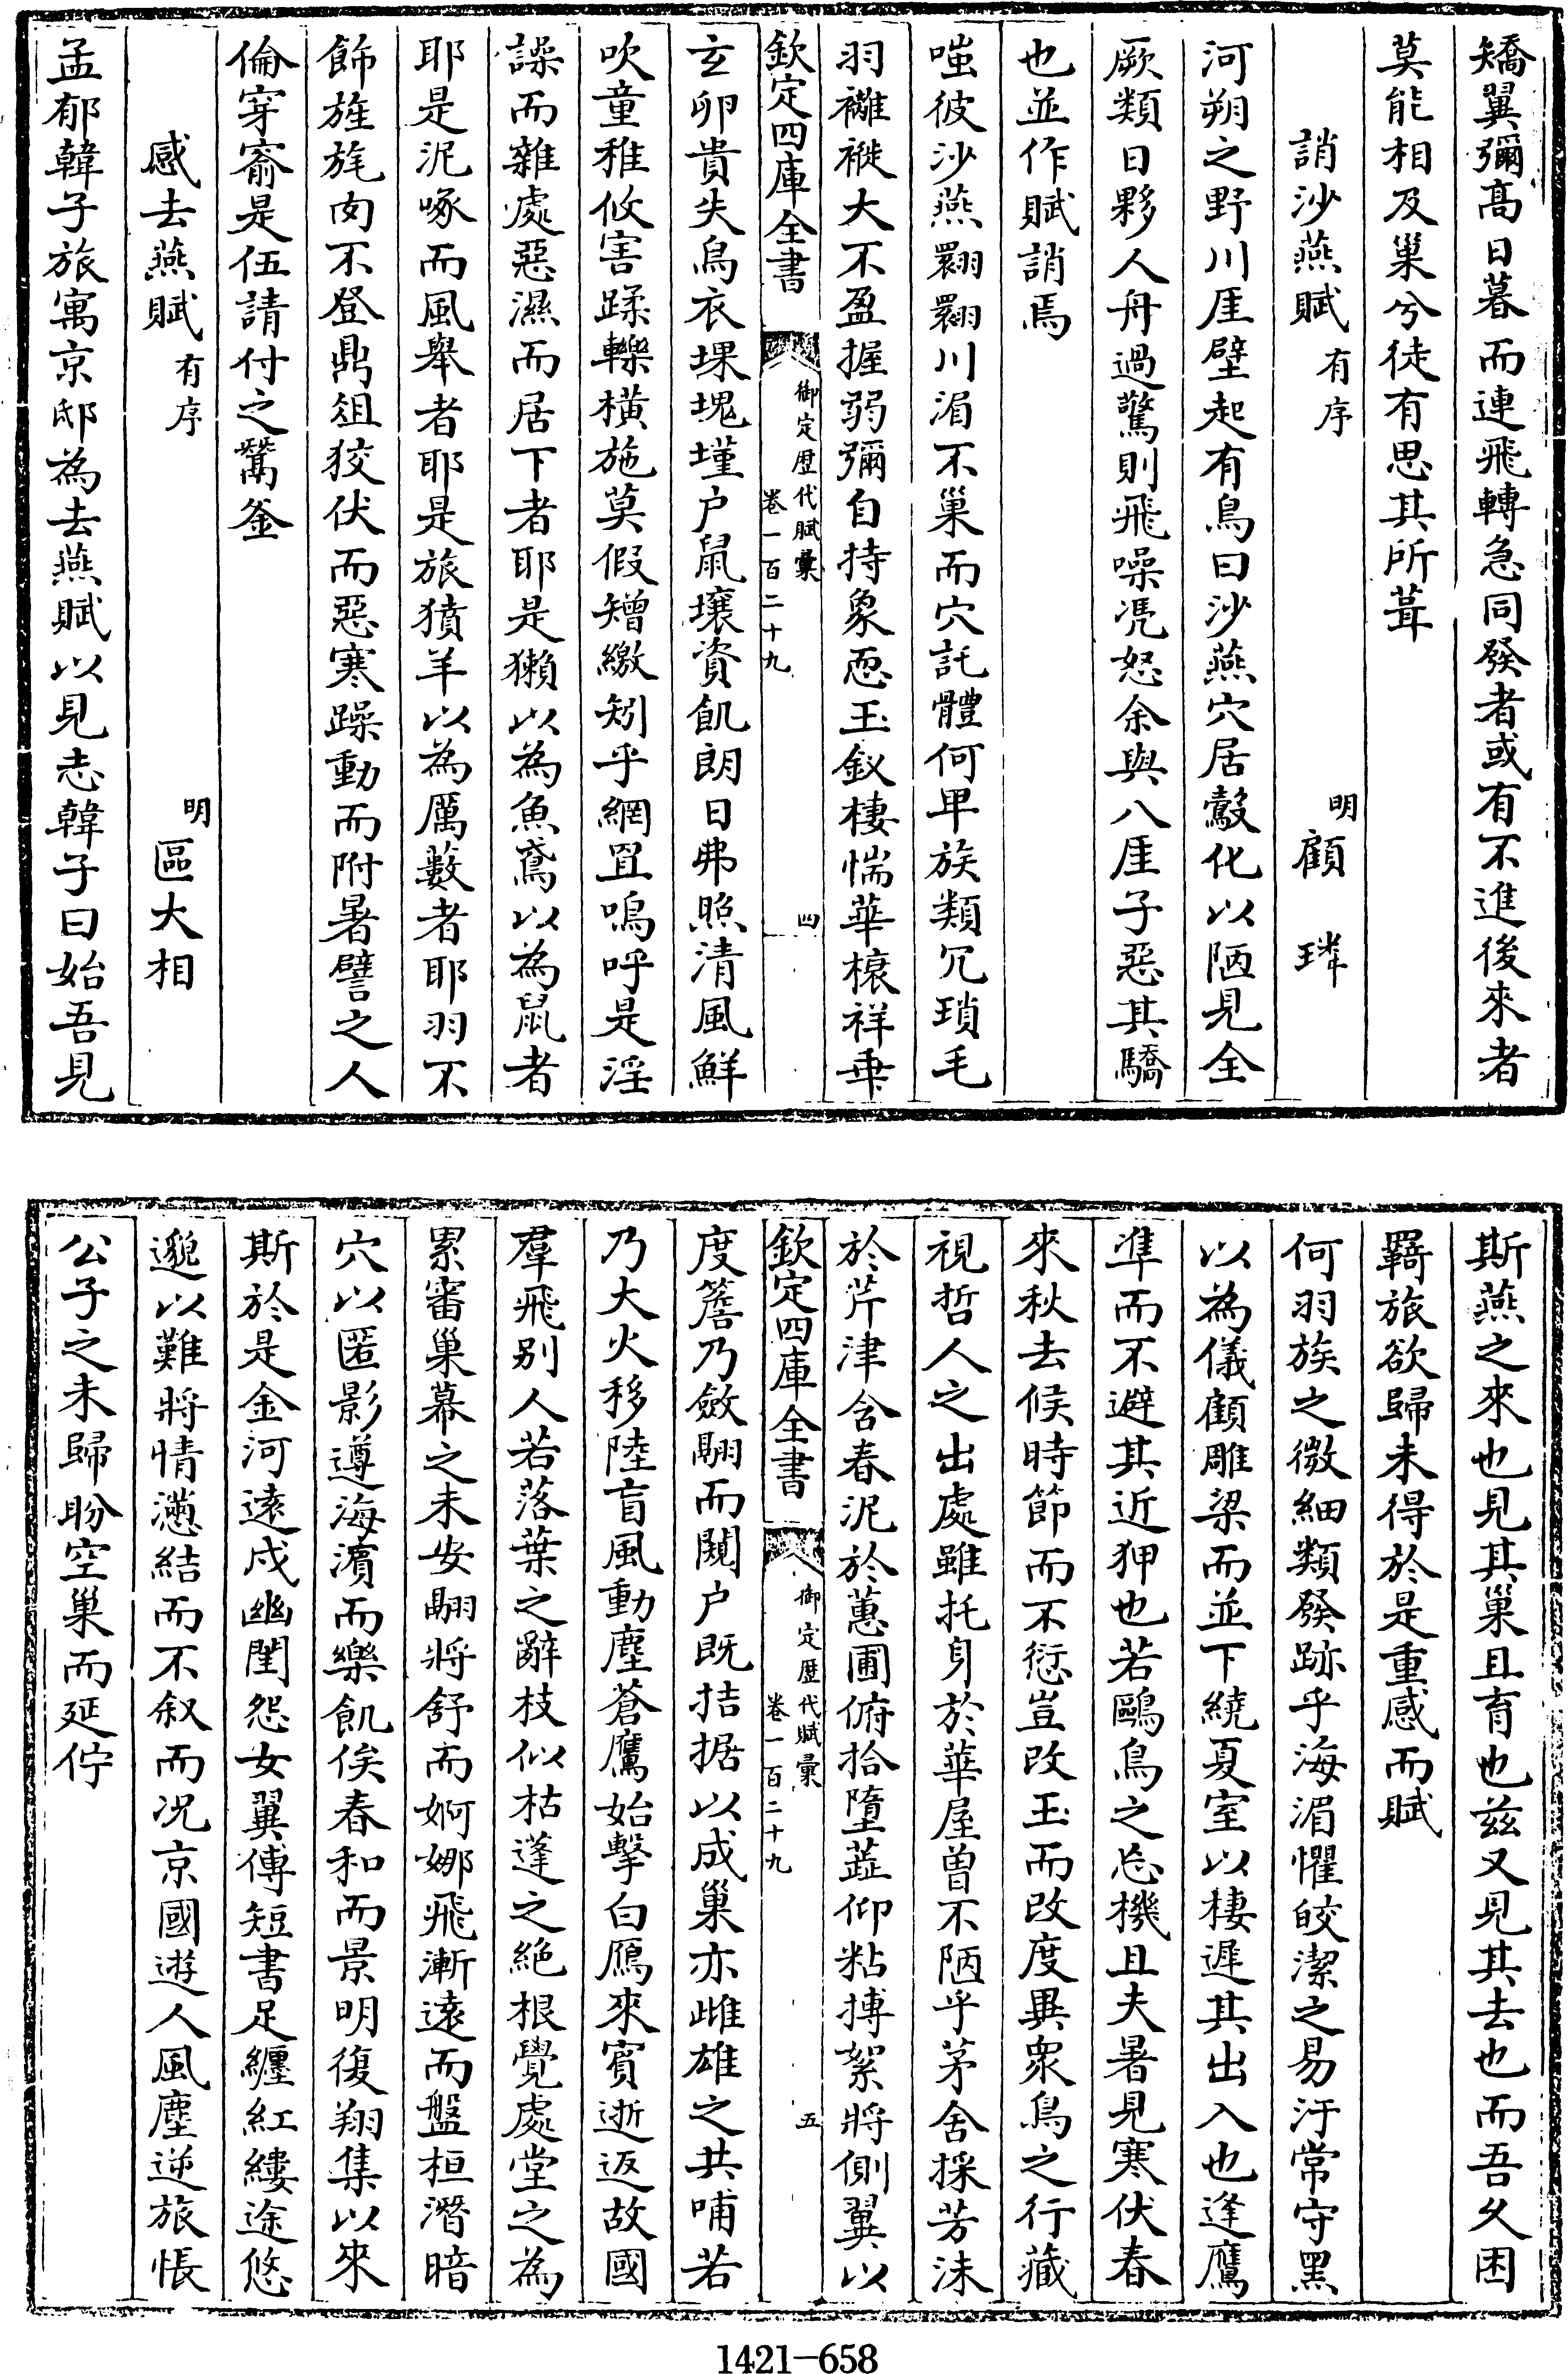 矯翼彌高日暮而連飛轉急同發者或有不進後來者
莫能相及巢兮徒有思其所葺
誚沙燕賦有序 明顧璘
河朔之野川厓壁起有鳥曰沙燕穴居鷇化以陋見全
厥類日夥人舟過驚則飛噪凭怒余與八厓子惡其驕
也並作賦誚焉
嗤彼沙燕翾翾川湄不巢而穴託體何卑族類冗瑣毛
羽襳褷大不盈握弱彌自持象恧玉釵棲惴華榱祥乖
欽定四庫全書
御定歷代賦彙
卷一百二十九
四
玄卵貴失烏衣堁塊墐户鼠壤資飢朗日弗照清風鮮
吹童稚攸害蹂轢橫施莫假矰繳矧乎網罝嗚呼是淫
譟而雜處惡濕而居下者耶是獺以為魚鳶以為鼠者
耶是泥啄而風舉者耶是旅獖羊以為厲藪者耶羽不
飾旌旄肉不登鼎俎狡伏而惡寒躁動而附暑譬之人
倫穿窬是伍請付之鬵釜
感去燕賦有序 明區大相
孟郁韓子旅寓京邸為去燕賦以見志韓子曰始吾見
斯燕之來也見其巢且育也兹又見其去也而吾久困
羇旅欲歸未得於是重感而賦
何羽族之微細類發跡乎海湄懼皎潔之易汙常守黑
以為儀顧雕梁而並下繞夏室以棲遲其出入也逢鷹
準而不避其近狎也若鷗鳥之忘機且夫暑見寒伏春
來秋去候時節而不愆豈改玉而改度異衆鳥之行藏
視哲人之出處雖托身於華屋曽不陋乎茅舍採芳沫
於芹津含春泥於蕙圃俯拾墮蘂仰粘摶絮將側翼以
欽定四庫全書
御定歷代賦彙
卷一百二十九
五
度簷乃斂翮而闚户既拮据以成巢亦雌雄之共哺若
乃大火移陸盲風動塵蒼鷹始擊白鴈來賓逝返故國
羣飛别人若落葉之辭枝似枯蓬之絶根覺處堂之為
累審巢幕之未安翮將舒而婀娜飛漸遠而盤桓潛暗
穴以匿影遵海濱而樂飢俟春和而景明復翔集以來
斯於是金河遠戍幽閨怨女翼傳短書足纏紅縷途悠
邈以難將情懣結而不叙而况京國遊人風塵逆旅悵
公子之未歸盼空巢而延佇
1421-658